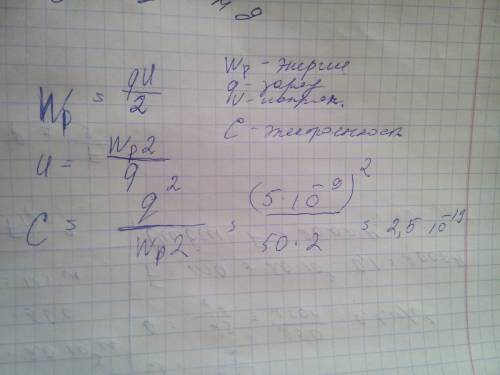 Wp = qU/2
Wp - энергия
q - заряд
U - напряж.
C - электроемкость
U = Wp2/q
C = q²/Wp2 = (5·10⁻⁹)²/50·2 = 2,5·10⁻¹⁹